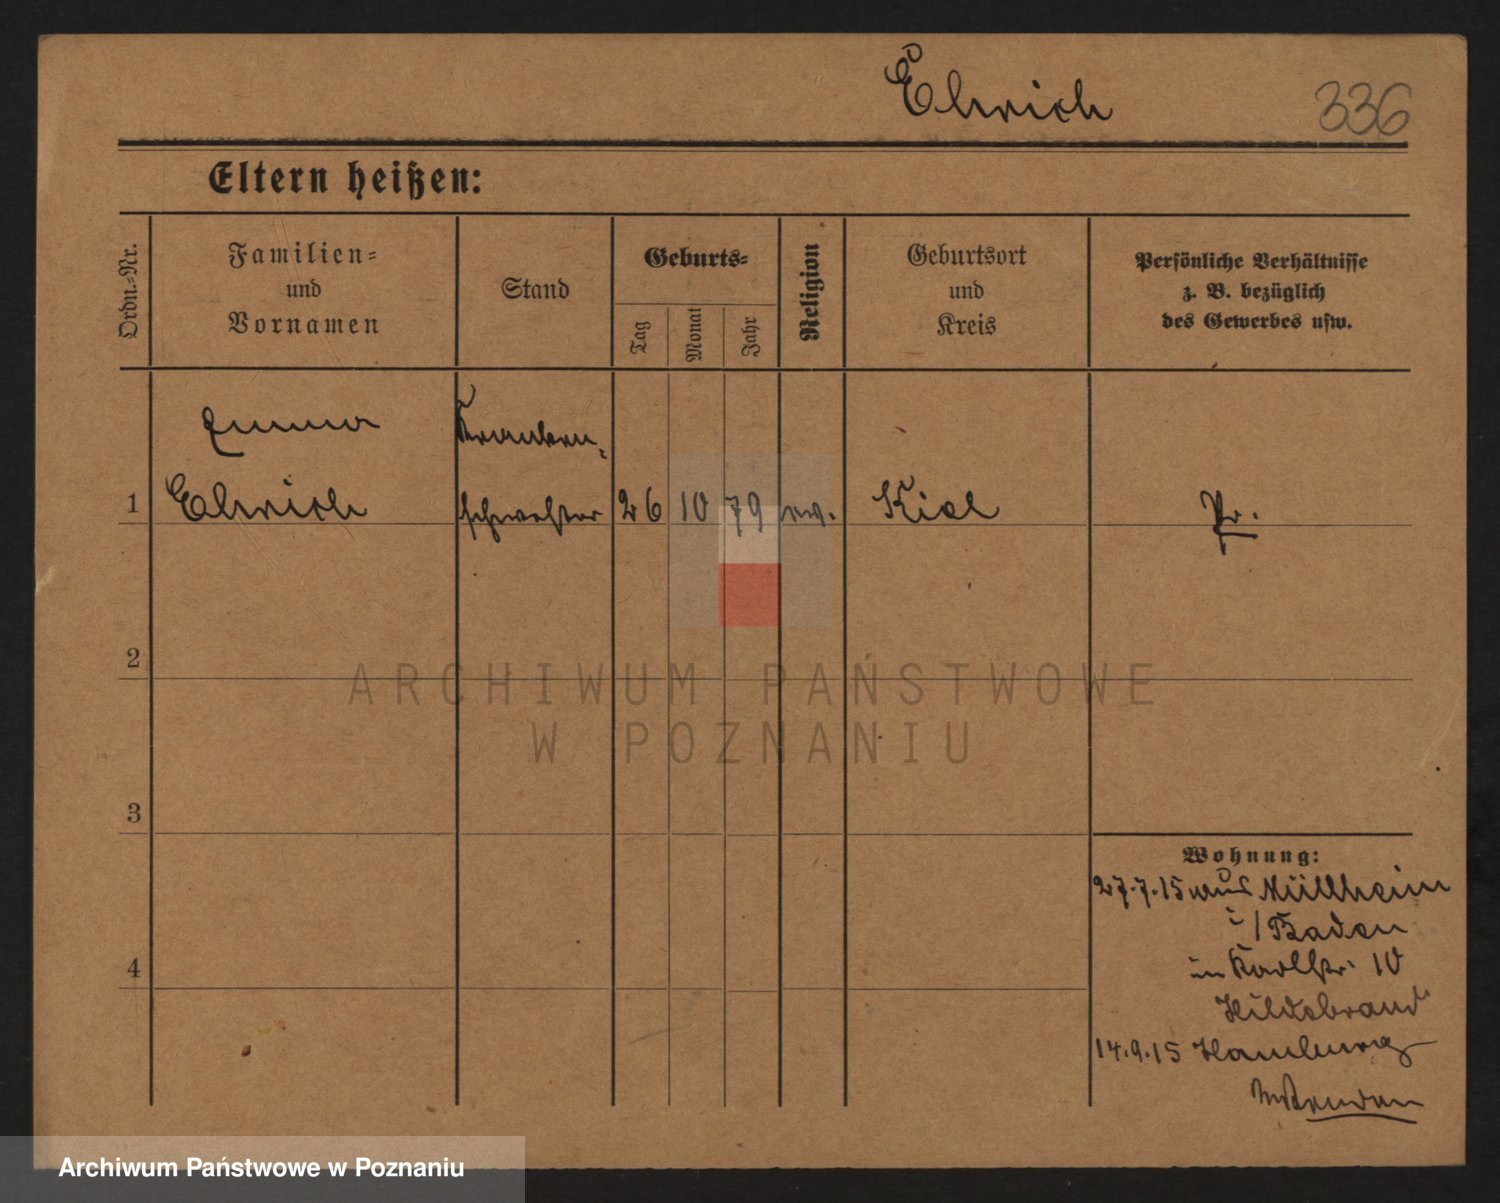 Ehrich
336
Eltern heißen:
Ordn.-Nr.
Familien-
und
Vornamen
Stand
Geburts-
Tag
Monat
Jahr
Religion
Geburtsort
und
Kreis
Persönliche Verhältnisse
z. B. bezüglich
des Gewerbes usw.
Emma
Kranken-
1
Ehrich
schwester
26
10
79
ev.
Kiel
Pr.
2
ARCHIWUM PAŃSTWOWE
W POZNANIU
3
Wohnung:
27.7.15 aus Müllheim
i/Baden
in Karlstr. 10
Hildebrand
4
14.9.15 Hamburg
Archiwum Państwowe w Poznaniu